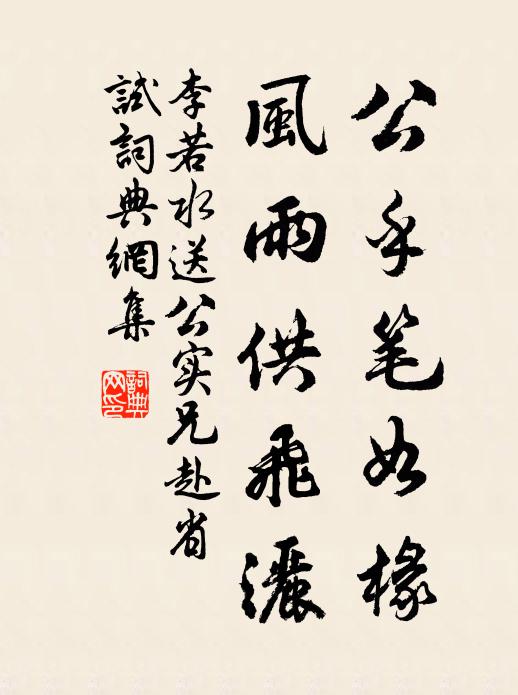 公手笔如椽
風雨供飛灑
李若水送公实兄赴省
試詞典網集
詞典
网印